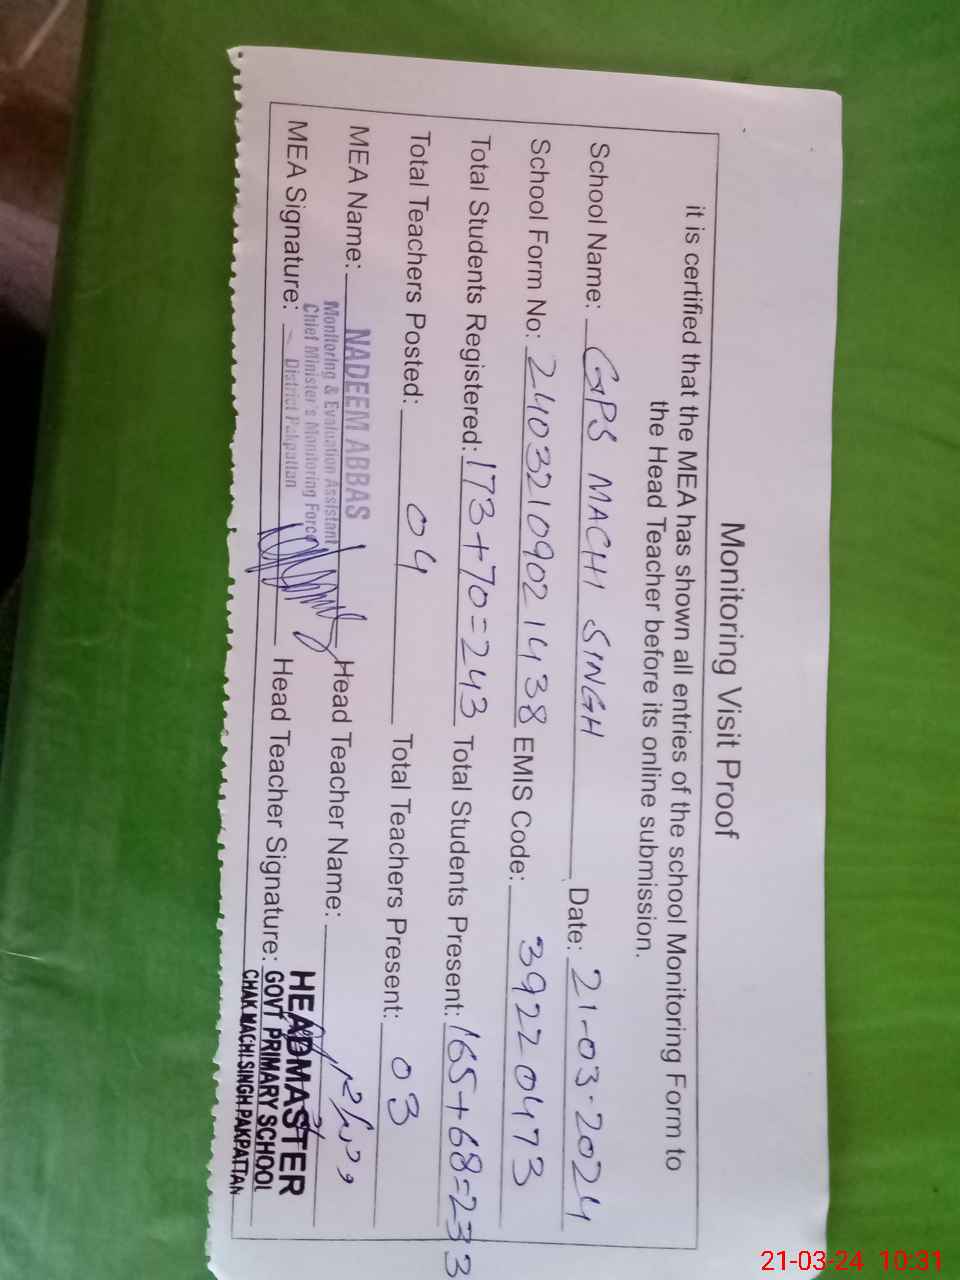 Monitoring Visit Proof
it is certified that the MEA has shown all entries of the school Monitoring Form to
the Head Teacher before its online submission.
School Name: GPS MACHI SINGH Date: 21-03-2024
School Form No: 2403210902 1438 EMIS Code: 39220473
Total Students Registered: 173+70=243 Total Students Present: 165+68=233
Total Teachers Posted: 04 Total Teachers Present: 03
MEA Name: NADEEM ABBAS Head Teacher Name:
Monitoring & Evaluation Assistant
Chief Minister's Monitoring Force
MEA Signature: District Pakpattan Head Teacher Signature:
HEADMASTER
GOVT PRIMARY SCHOOL
CHAK MACHI SINGH PAKPATTAN
21-03-24 10:31